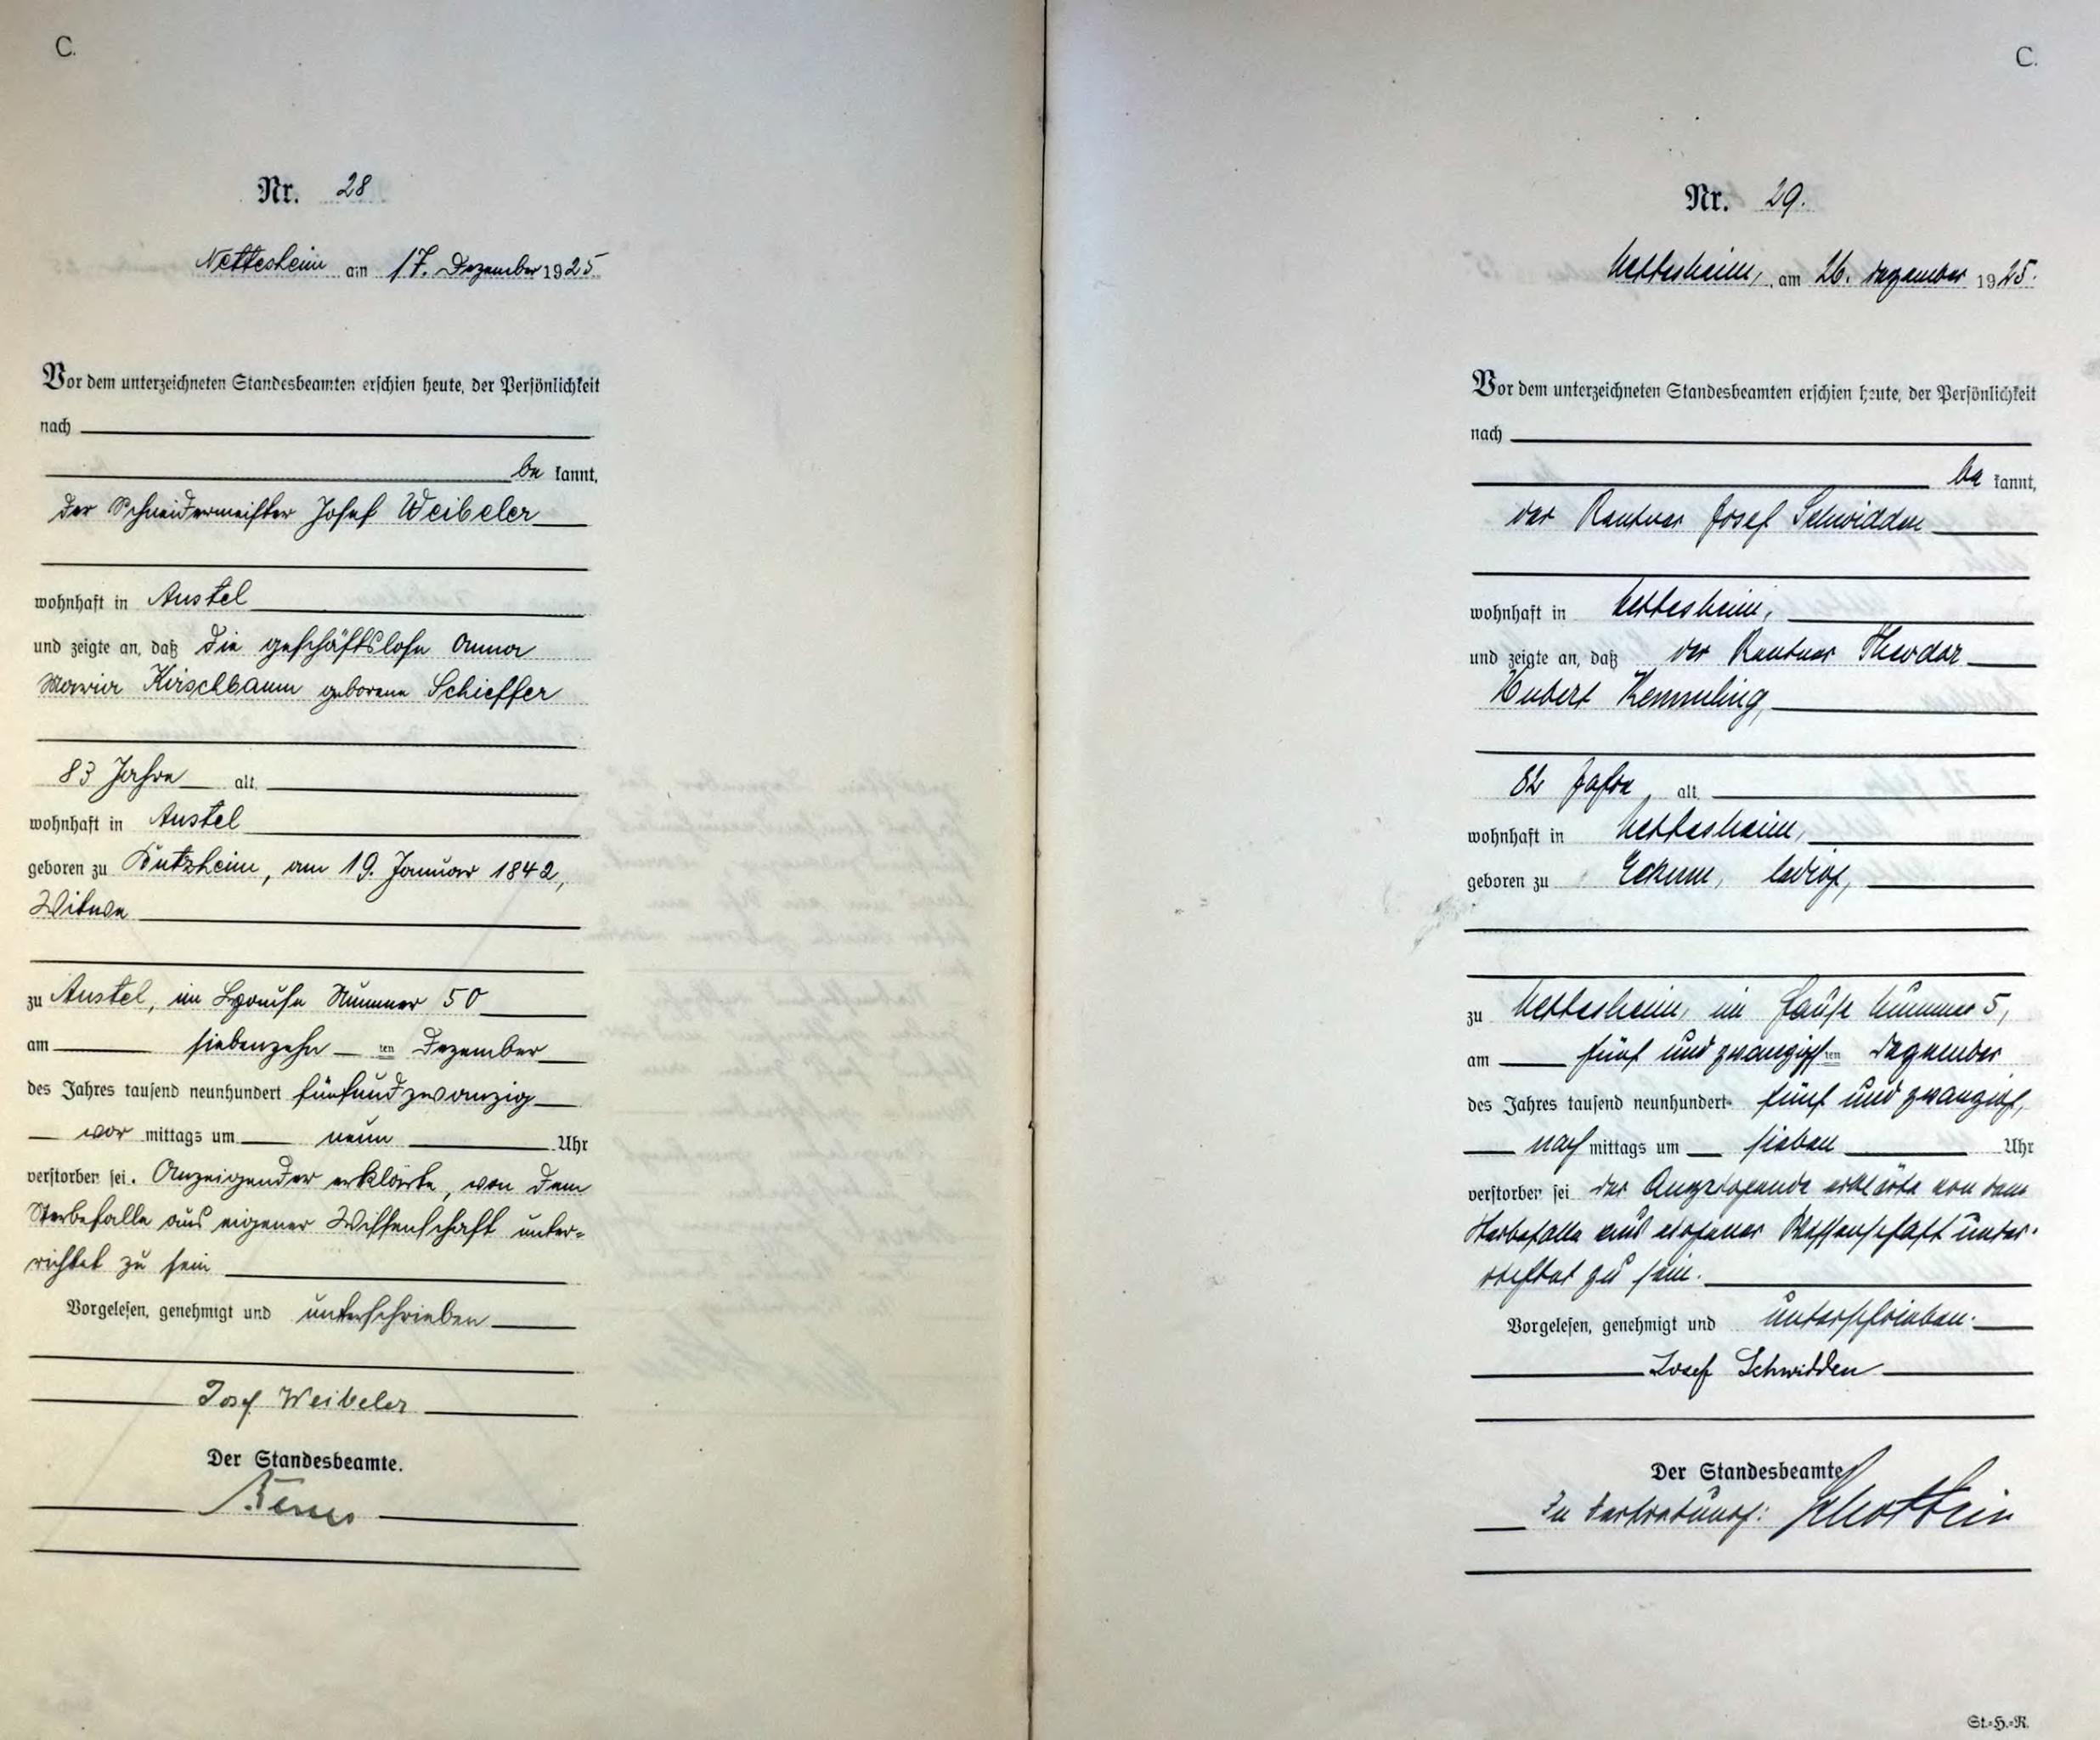 C.
Nr. 28
Nettesheim am 17. Dezember 1925
Vor dem unterzeichneten Standesbeamten erschien heute, der Persönlichkeit
nach
be kannt,
der Schneidermeister Josef Weibeler
wohnhaft in Anstel
und zeigte an, daß die geschäftslose Anna
Maria Kirschbaum geborene Schieffer
83 Jahre alt,
wohnhaft in Anstel
geboren zu Butzheim, am 19. Januar 1842,
Witwe
zu Anstel, im Hause Nummer 50
am siebenzehn ten Dezember
des Jahres tausend neunhundert fünfundzwanzig
vor mittags um neun Uhr
verstorben sei. Anzeigender erklärte, von dem
Sterbefalle aus eigener Wissenschaft unter=
richtet zu sein
Vorgelesen, genehmigt und unterschrieben
Josef Weibeler
Der Standesbeamte.
C.
Nr. 29.
Nettesheim, am 26. Dezember 1925.
Vor dem unterzeichneten Standesbeamten erschien heute, der Persönlichkeit
nach
be kannt,
der Rentner Josef Schwidden
wohnhaft in Nettesheim,
und zeigte an, daß der Rentner Theodor
Hubert Kemmerling,
82 Jahre alt,
wohnhaft in Nettesheim,
geboren zu Eckum, ledig,
zu Nettesheim, im Hause Nummer 5,
am fünf und zwanzigsten Dezember
des Jahres tausend neunhundert fünf und zwanzig,
nach mittags um sieben Uhr
verstorben sei Der Anzeigende erklärte von dem
Sterbefalle aus eigener Wissenschaft unter-
richtet zu sein.
Vorgelesen, genehmigt und unterschrieben.
Josef Schwidden
Der Standesbeamte
In Vertretung:
St.=H.=R.